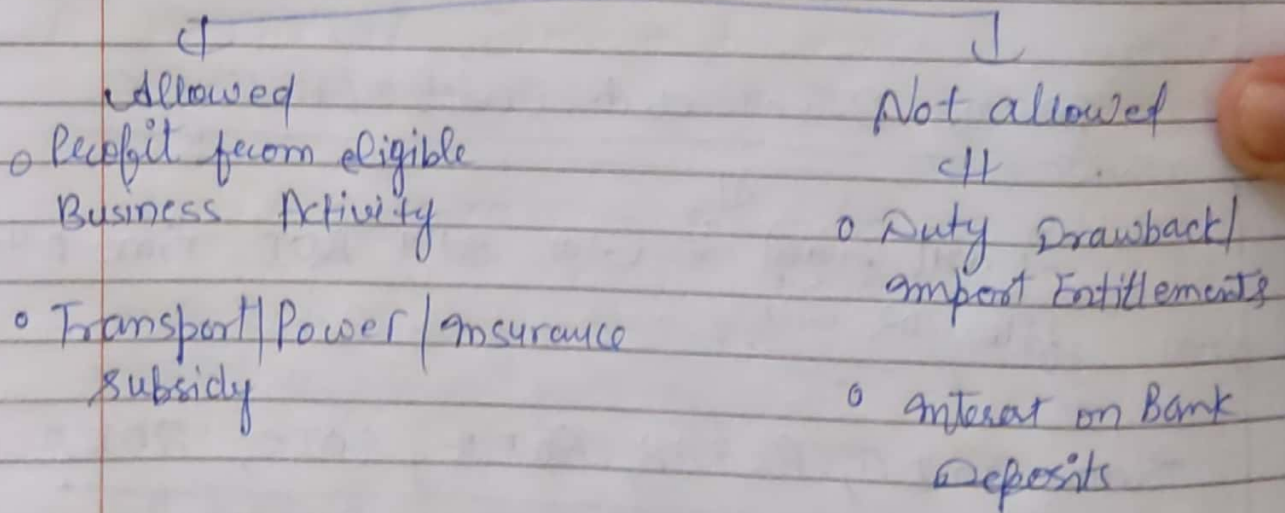 Allowed
Not allowed
o Receipt from eligible
Business Activity
o Transport/Power/Insurance
subsidy
o Duty Drawback/
Import Entitlements
o Interest on Bank
Deposits